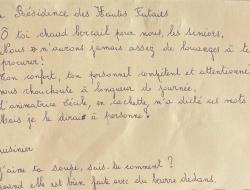 Résidence des Hauts Futaies
Ô toi chaud bercail pour nous, les seniors,
Nous n'aurons jamais assez de louanges à te
procurer !
Ton confort, ton personnel compétent et attentionné
nous chouchoute à longueur de journée.
L'animatrice Cécile, en cachette, m'a dicté ces mots
Mais je le dirai à personne.
uisinier
J'aime ta soupe, sais-tu comment ?
quand elle est bien faite avec du beurre dedans.